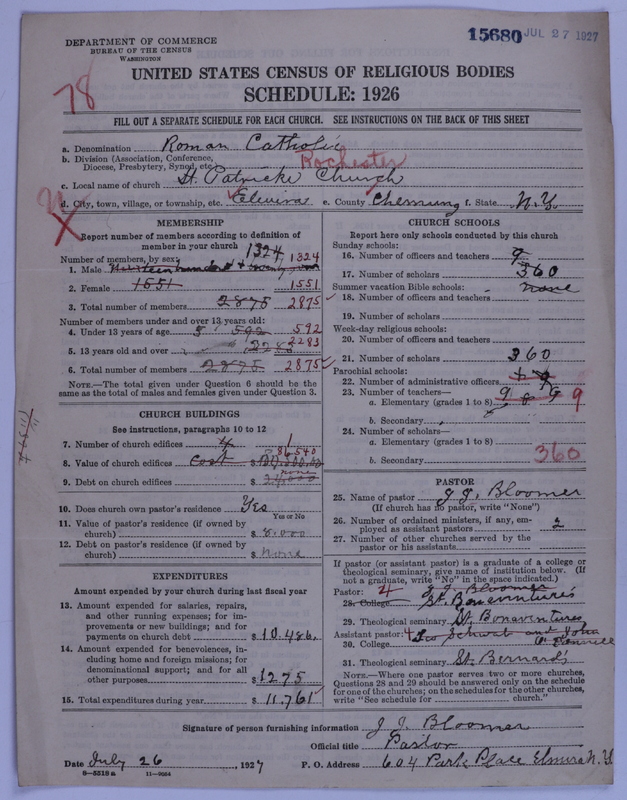 DEPARTMENT OF COMMERCE
BUREAU OF THE CENSUS
WASHINGTON
15680 JUL 27 1927
UNITED STATES CENSUS OF RELIGIOUS BODIES
SCHEDULE: 1926
78
FILL OUT A SEPARATE SCHEDULE FOR EACH CHURCH. SEE INSTRUCTIONS ON THE BACK OF THIS SHEET
a. Denomination Roman Catholic
b. Division (Association, Conference, Diocese, Presbytery, Synod, etc.) Rochester
c. Local name of church St. Patricks Church
d. City, town, village, or township, etc. Elmira e. County Chemung f. State N.Y.
MEMBERSHIP
Report number of members according to definition of
member in your church
Number of members, by sex: 1324 1324
1. Male
2. Female 1551 1551
3. Total number of members 2875 2875
Number of members under and over 13 years old:
4. Under 13 years of age 592 592
5. 13 years old and over 2283 2283
6. Total number of members 2875 2875
NOTE.—The total given under Question 6 should be the
same as the total of males and females given under Question 3.
CHURCH BUILDINGS
See instructions, paragraphs 10 to 12
7. Number of church edifices 4 1
8. Value of church edifices cost $ 86540
9. Debt on church edifices $ none
10. Does church own pastor's residence Yes
Yes or No
11. Value of pastor's residence (if owned by
church) $ 8.000
12. Debt on pastor's residence (if owned by
church) $ None
EXPENDITURES
Amount expended by your church during last fiscal year
13. Amount expended for salaries, repairs,
and other running expenses; for im-
provements or new buildings; and for
payments on church debt $ 10.486.
14. Amount expended for benevolences, in-
cluding home and foreign missions; for
denominational support; and for all
other purposes $ 1275
15. Total expenditures during year $ 11.761
CHURCH SCHOOLS
Report here only schools conducted by this church
Sunday schools:
16. Number of officers and teachers 9
17. Number of scholars 360
Summer vacation Bible schools: none
18. Number of officers and teachers
19. Number of scholars
Week-day religious schools:
20. Number of officers and teachers
21. Number of scholars 360
Parochial schools:
22. Number of administrative officers
23. Number of teachers—
a. Elementary (grades 1 to 8) 9 9
b. Secondary
24. Number of scholars—
a. Elementary (grades 1 to 8)
b. Secondary 360
PASTOR
25. Name of pastor J. J. Bloomer
(If church has no pastor, write "None")
26. Number of ordained ministers, if any, em-
ployed as assistant pastors 2
27. Number of other churches served by the
pastor or his assistants
If pastor (or assistant pastor) is a graduate of a college or
theological seminary, give name of institution below. (If
not a graduate, write "No" in the space indicated.)
Pastor: 4 J. J. Bloomer
28. College St. Bonaventures
29. Theological seminary St. Bonaventures
Assistant pastor: Leo Schwab and John
30. College
31. Theological seminary St. Bernard's
NOTE.—Where one pastor serves two or more churches,
Questions 28 and 29 should be answered only on the schedule
for one of the churches; on the schedules for the other churches,
write "See schedule for church."
Signature of person furnishing information J. J. Bloomer
Official title Pastor
Date July 26, 1927 P. O. Address 604 Park Place Elmira N.Y.
8-5518a 11-9054